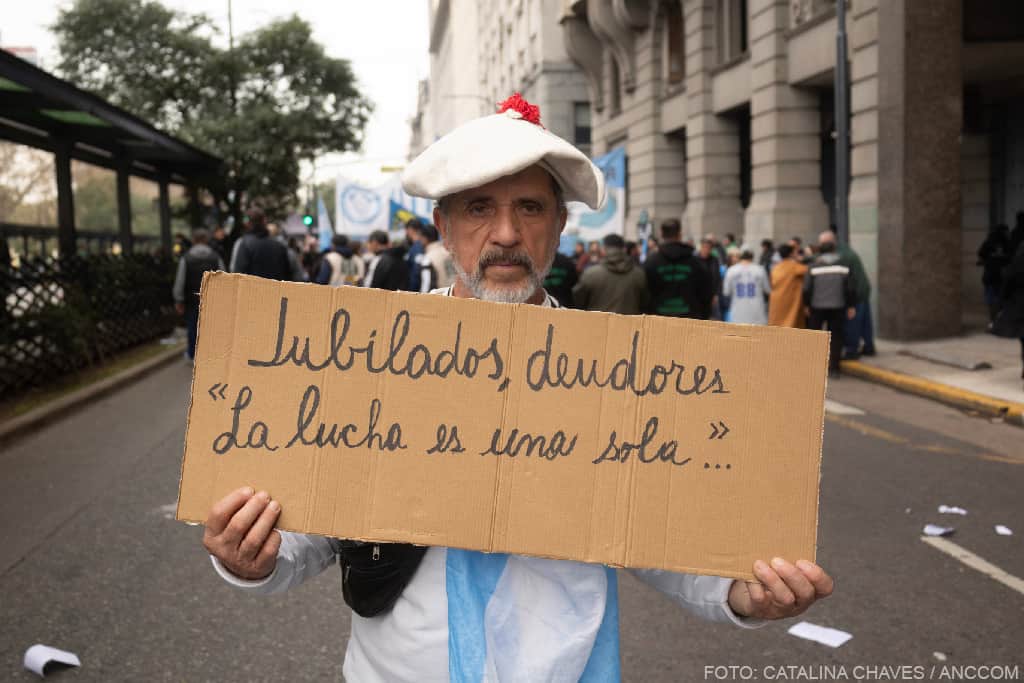 Jubilados, deudores
«La lucha es una sola...»
88
FOTO: CATALINA CHAVES / ANCCOM